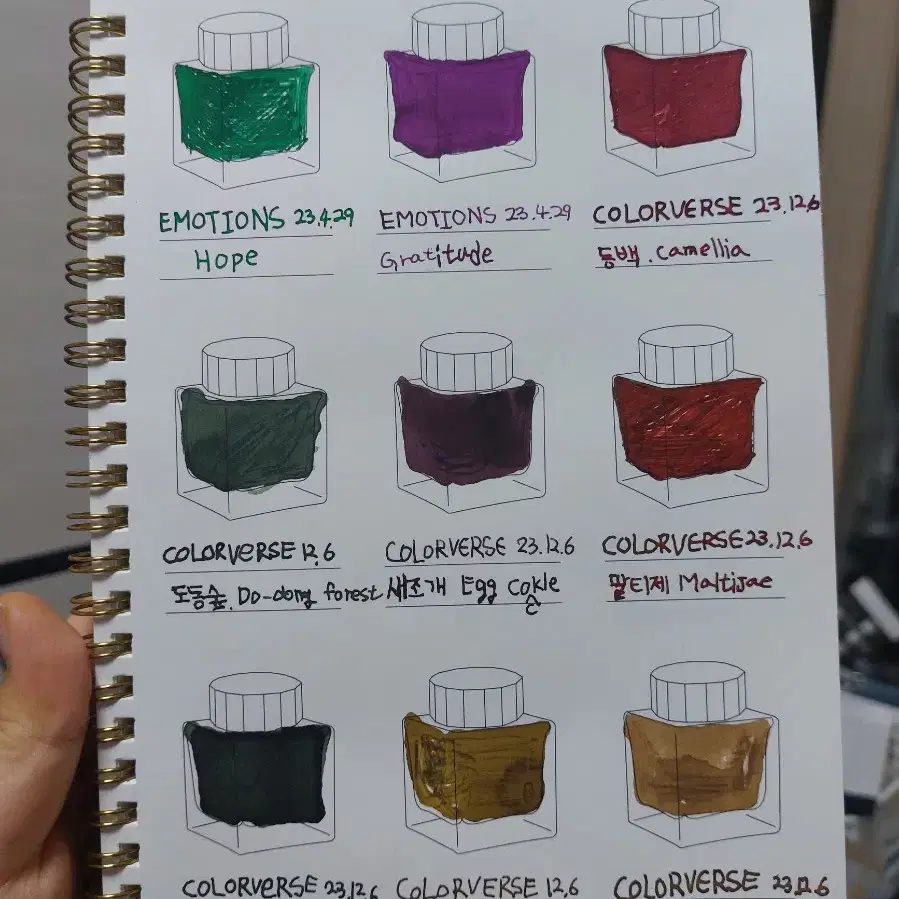 EMOTIONS 23.4.29
Hope
EMOTIONS 23.4.29
Gratitude
COLORVERSE 23.12.6
동백. Camellia
COLORVERSE 12.6
도동숲. Do-dong forest
COLORVERSE 23.12.6
새조개 Egg Cokle
c
COLORVERSE 23.12.6
말티제 Maltijae
COLORVERSE 23.12.6
COLORVERSE 12.6
COLORVERSE 23.12.6